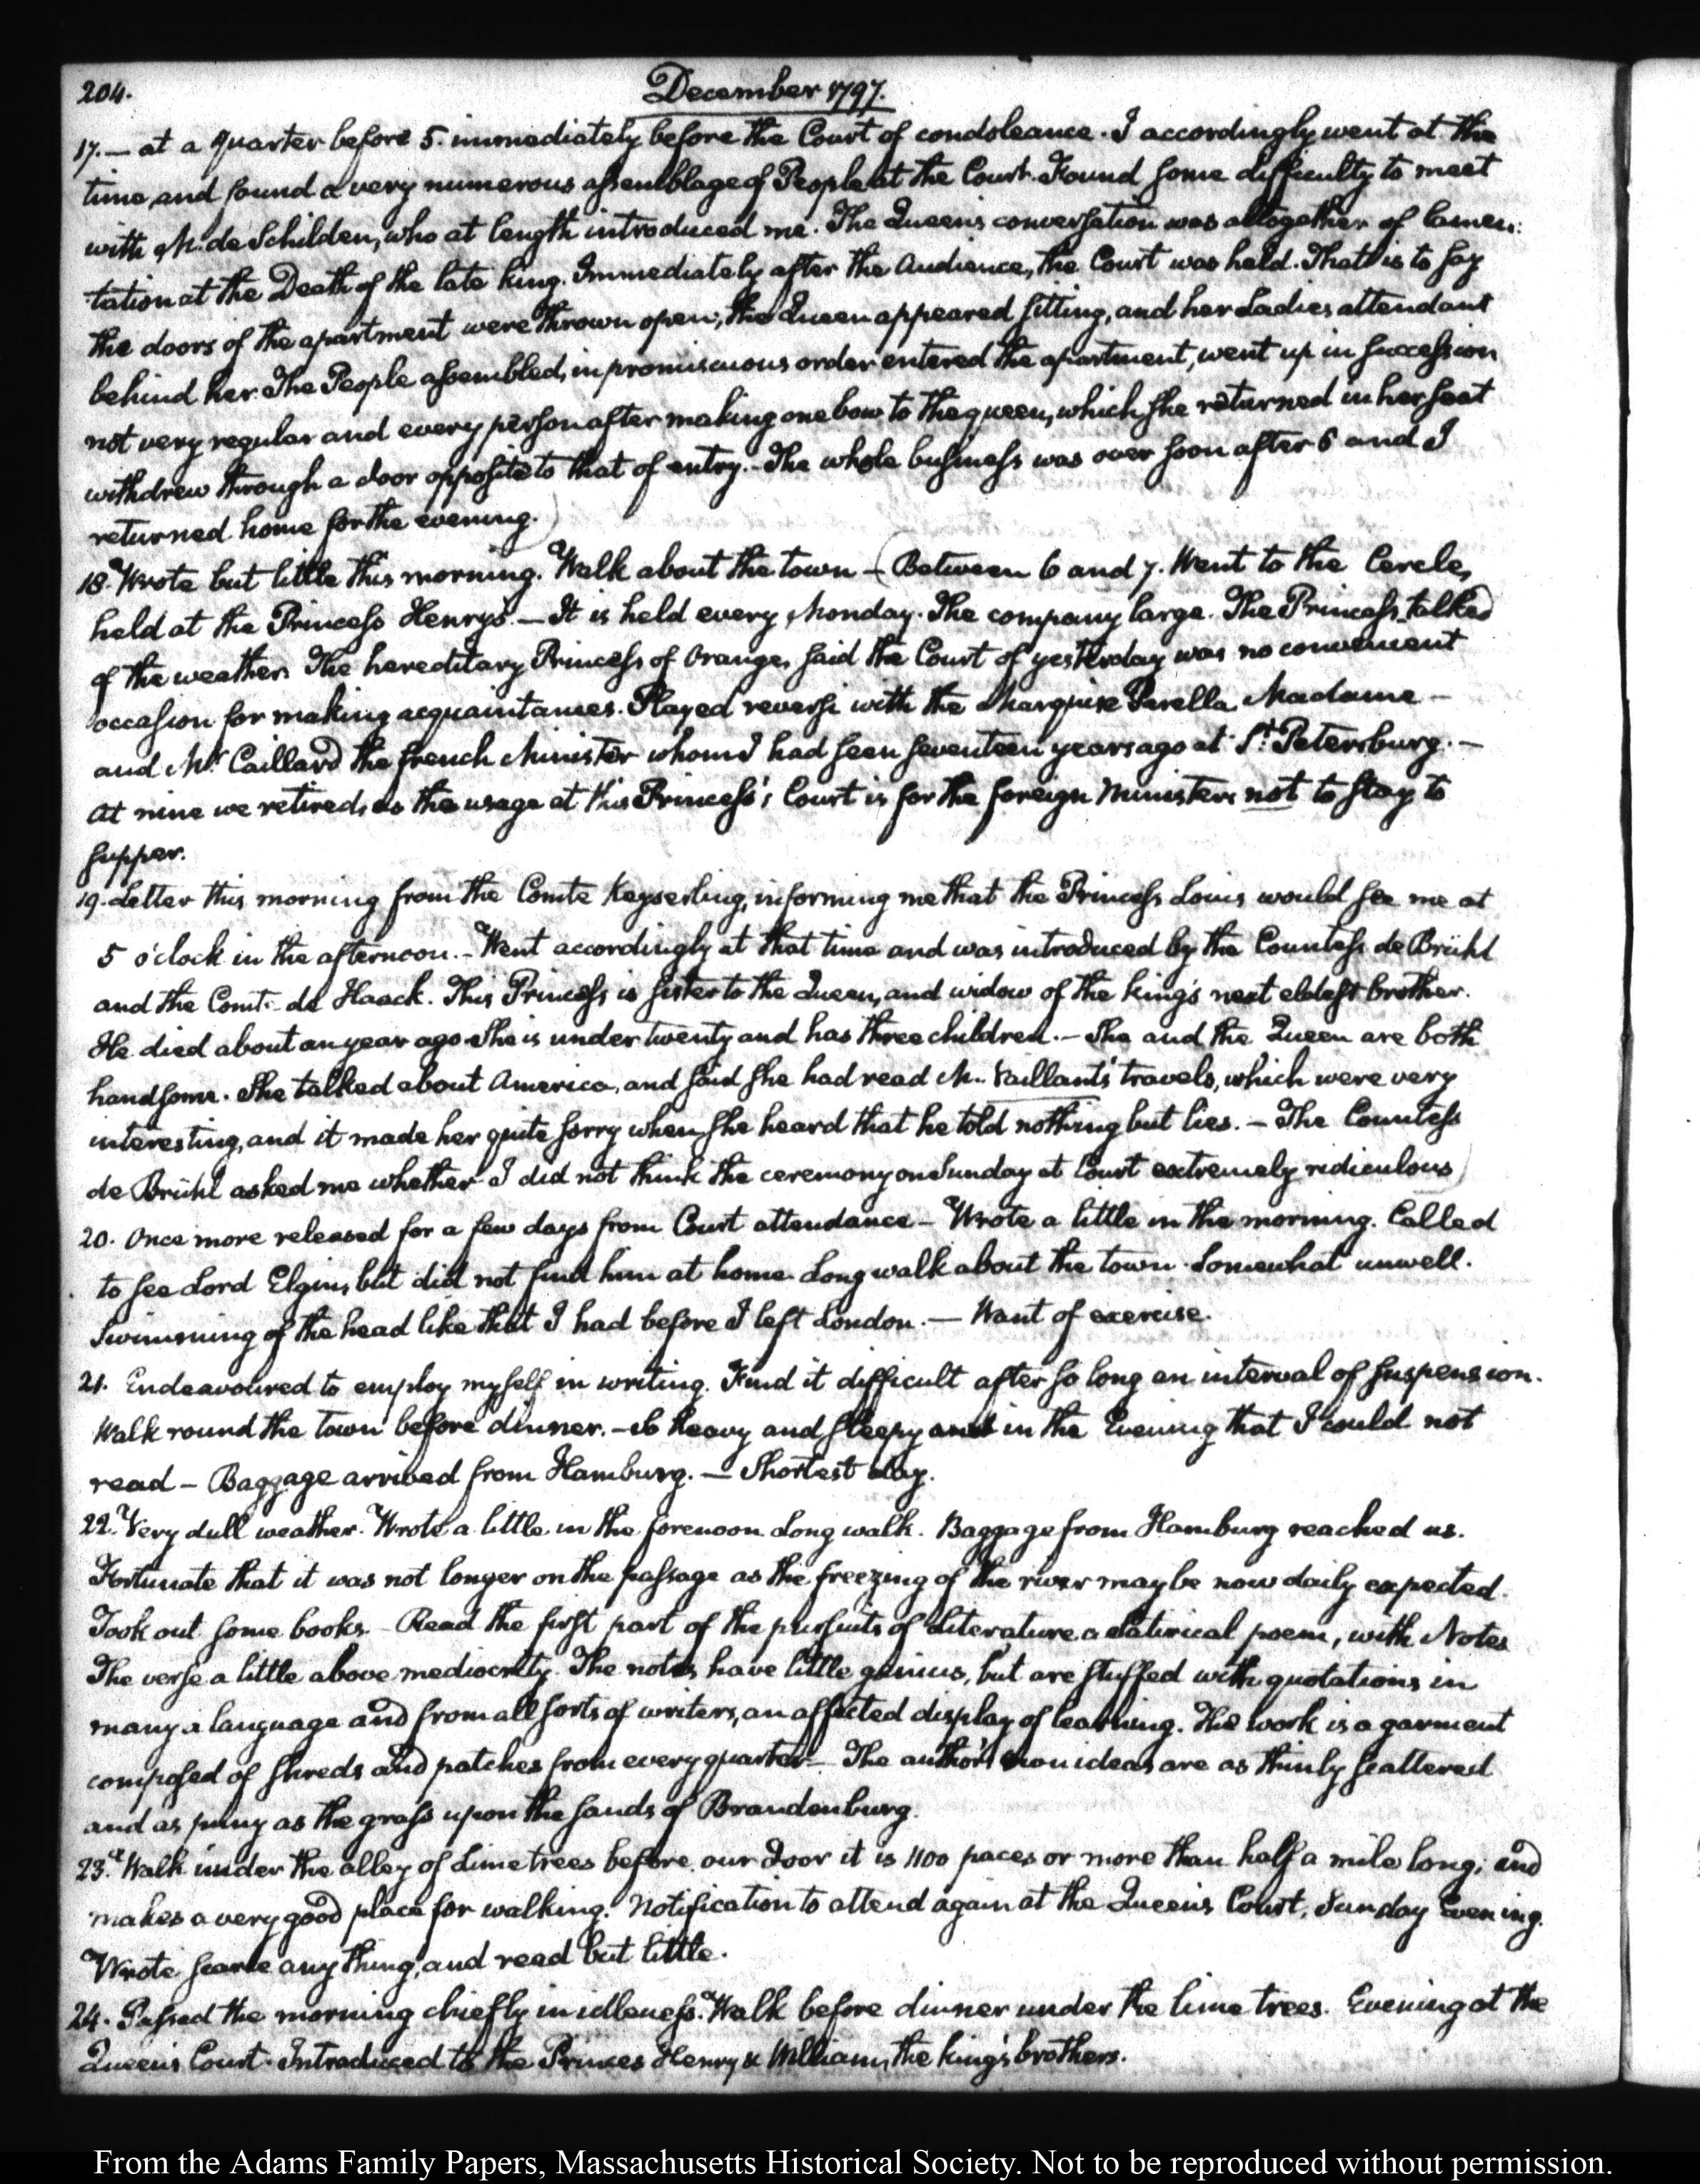 204.
December 1797.
17. — at a quarter before 5. immediately before the Court of condoleance. I accordingly went at the
time, and found a very numerous assemblage of People at the Court. Found some difficulty to meet
with M. de Schilden, who at length introduced me. The Queen's conversation was altogether of lamen:
tation at the Death of the late king. Immediately after the Audience, the Court was held. That is to say
the doors of the apartment were thrown open, the Queen appeared sitting, and her Ladies attendant
behind her. The People assembled, in promiscuous order entered the apartment, went up in succession
not very regular and every person after making one bow to the queen, which she returned in her seat
withdrew through a door opposite to that of entry. — The whole business was over soon after 6 and I
returned home for the evening.
18. Wrote but little this morning. Walk about the town — (Between 6 and 7. Went to the Cercle,
held at the Princess Henry's. — It is held every Monday. The company large. The Princess talked
of the weather. The hereditary Princess of Orange, said the Court of yesterday was no convenient
occasion for making acquaintances. Played reversi with the Marquise Parella Madame —
and Mr. Caillard the french Minister whom I had seen seventeen years ago at St. Petersburg. —
at nine we retired, as the usage at this Princess's Court is for the foreign Ministers not to stay to
supper.
19. Letter this morning from the Comte Keyserling, informing me that the Princess Louis would see me at
5 o'clock in the afternoon. — Went accordingly at that time and was introduced by the Countess de Brühl
and the Comte de Haack. This Princess is sister to the Queen, and widow of the king's next eldest brother.
He died about an year ago. She is under twenty and has three children. — She and the Queen are both
handsome. She talked about America, and said she had read M. Vaillant's travels, which were very
interesting, and it made her quite sorry when she heard that he told nothing but lies. — The Countess
de Brühl asked me whether I did not think the ceremony on Sunday at Court extremely ridiculous)
20. Once more released for a few days from Court attendance — Wrote a little in the morning. Called
to see Lord Elgin, but did not find him at home. Long walk about the town. Somewhat unwell.
Swimming of the head like that I had before I left London. — Want of exercise.
21. Endeavoured to employ myself in writing. Find it difficult after so long an interval of suspension.
Walk round the town before dinner. — So heavy and sleepy in the Evening that I could not
read — Baggage arrived from Hamburg. — Shortest day.
22. Very dull weather. Wrote a little in the forenoon. Long walk. Baggage from Hamburg reached us.
Fortunate that it was not longer on the passage as the freezing of the river may be now daily expected.
Took out some books. — Read the first part of the pursuits of Literature a satirical poem, with Notes
The verse a little above mediocrity. The notes have little genius, but are stuffed with quotations in
many a language and from all sorts of writers, an affected display of learning. His work is a garment
composed of shreds and patches from every quarter — The author's own ideas are as thinly scattered
and as puny as the grass upon the sands of Brandenburg.
23. Walk under the alley of Lime trees before our door it is 1100 paces or more than half a mile long; and
makes a very good place for walking. Notification to attend again at the Queen's Court, Sunday Evening.
Wrote scarce any thing, and read but little.
24. Passed the morning chiefly in idleness. Walk before dinner under the lime trees. Evening at the
Queen's Court. Introduced to the Princes Henry & William, the king's brothers.
From the Adams Family Papers, Massachusetts Historical Society. Not to be reproduced without permission.